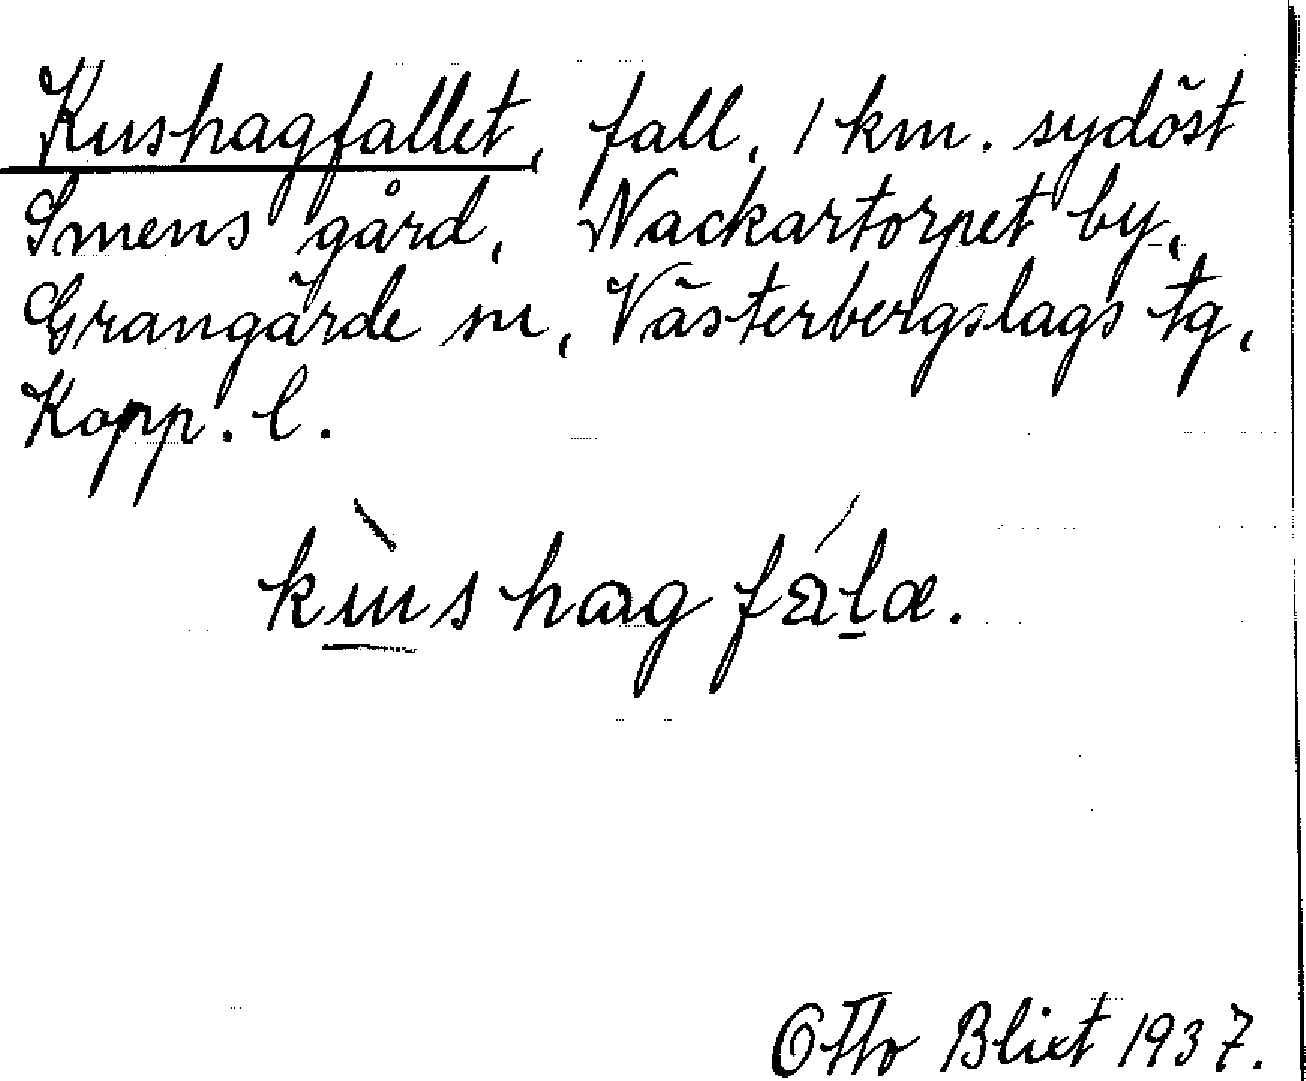 Kushagfallet, fall, 1 km. sydöst
Smens gård, Nackartorpet by,
Grangärde sn, Västerbergslags tg,
Kopp. l.
kùshag fála.
Otto Blixt 1937.